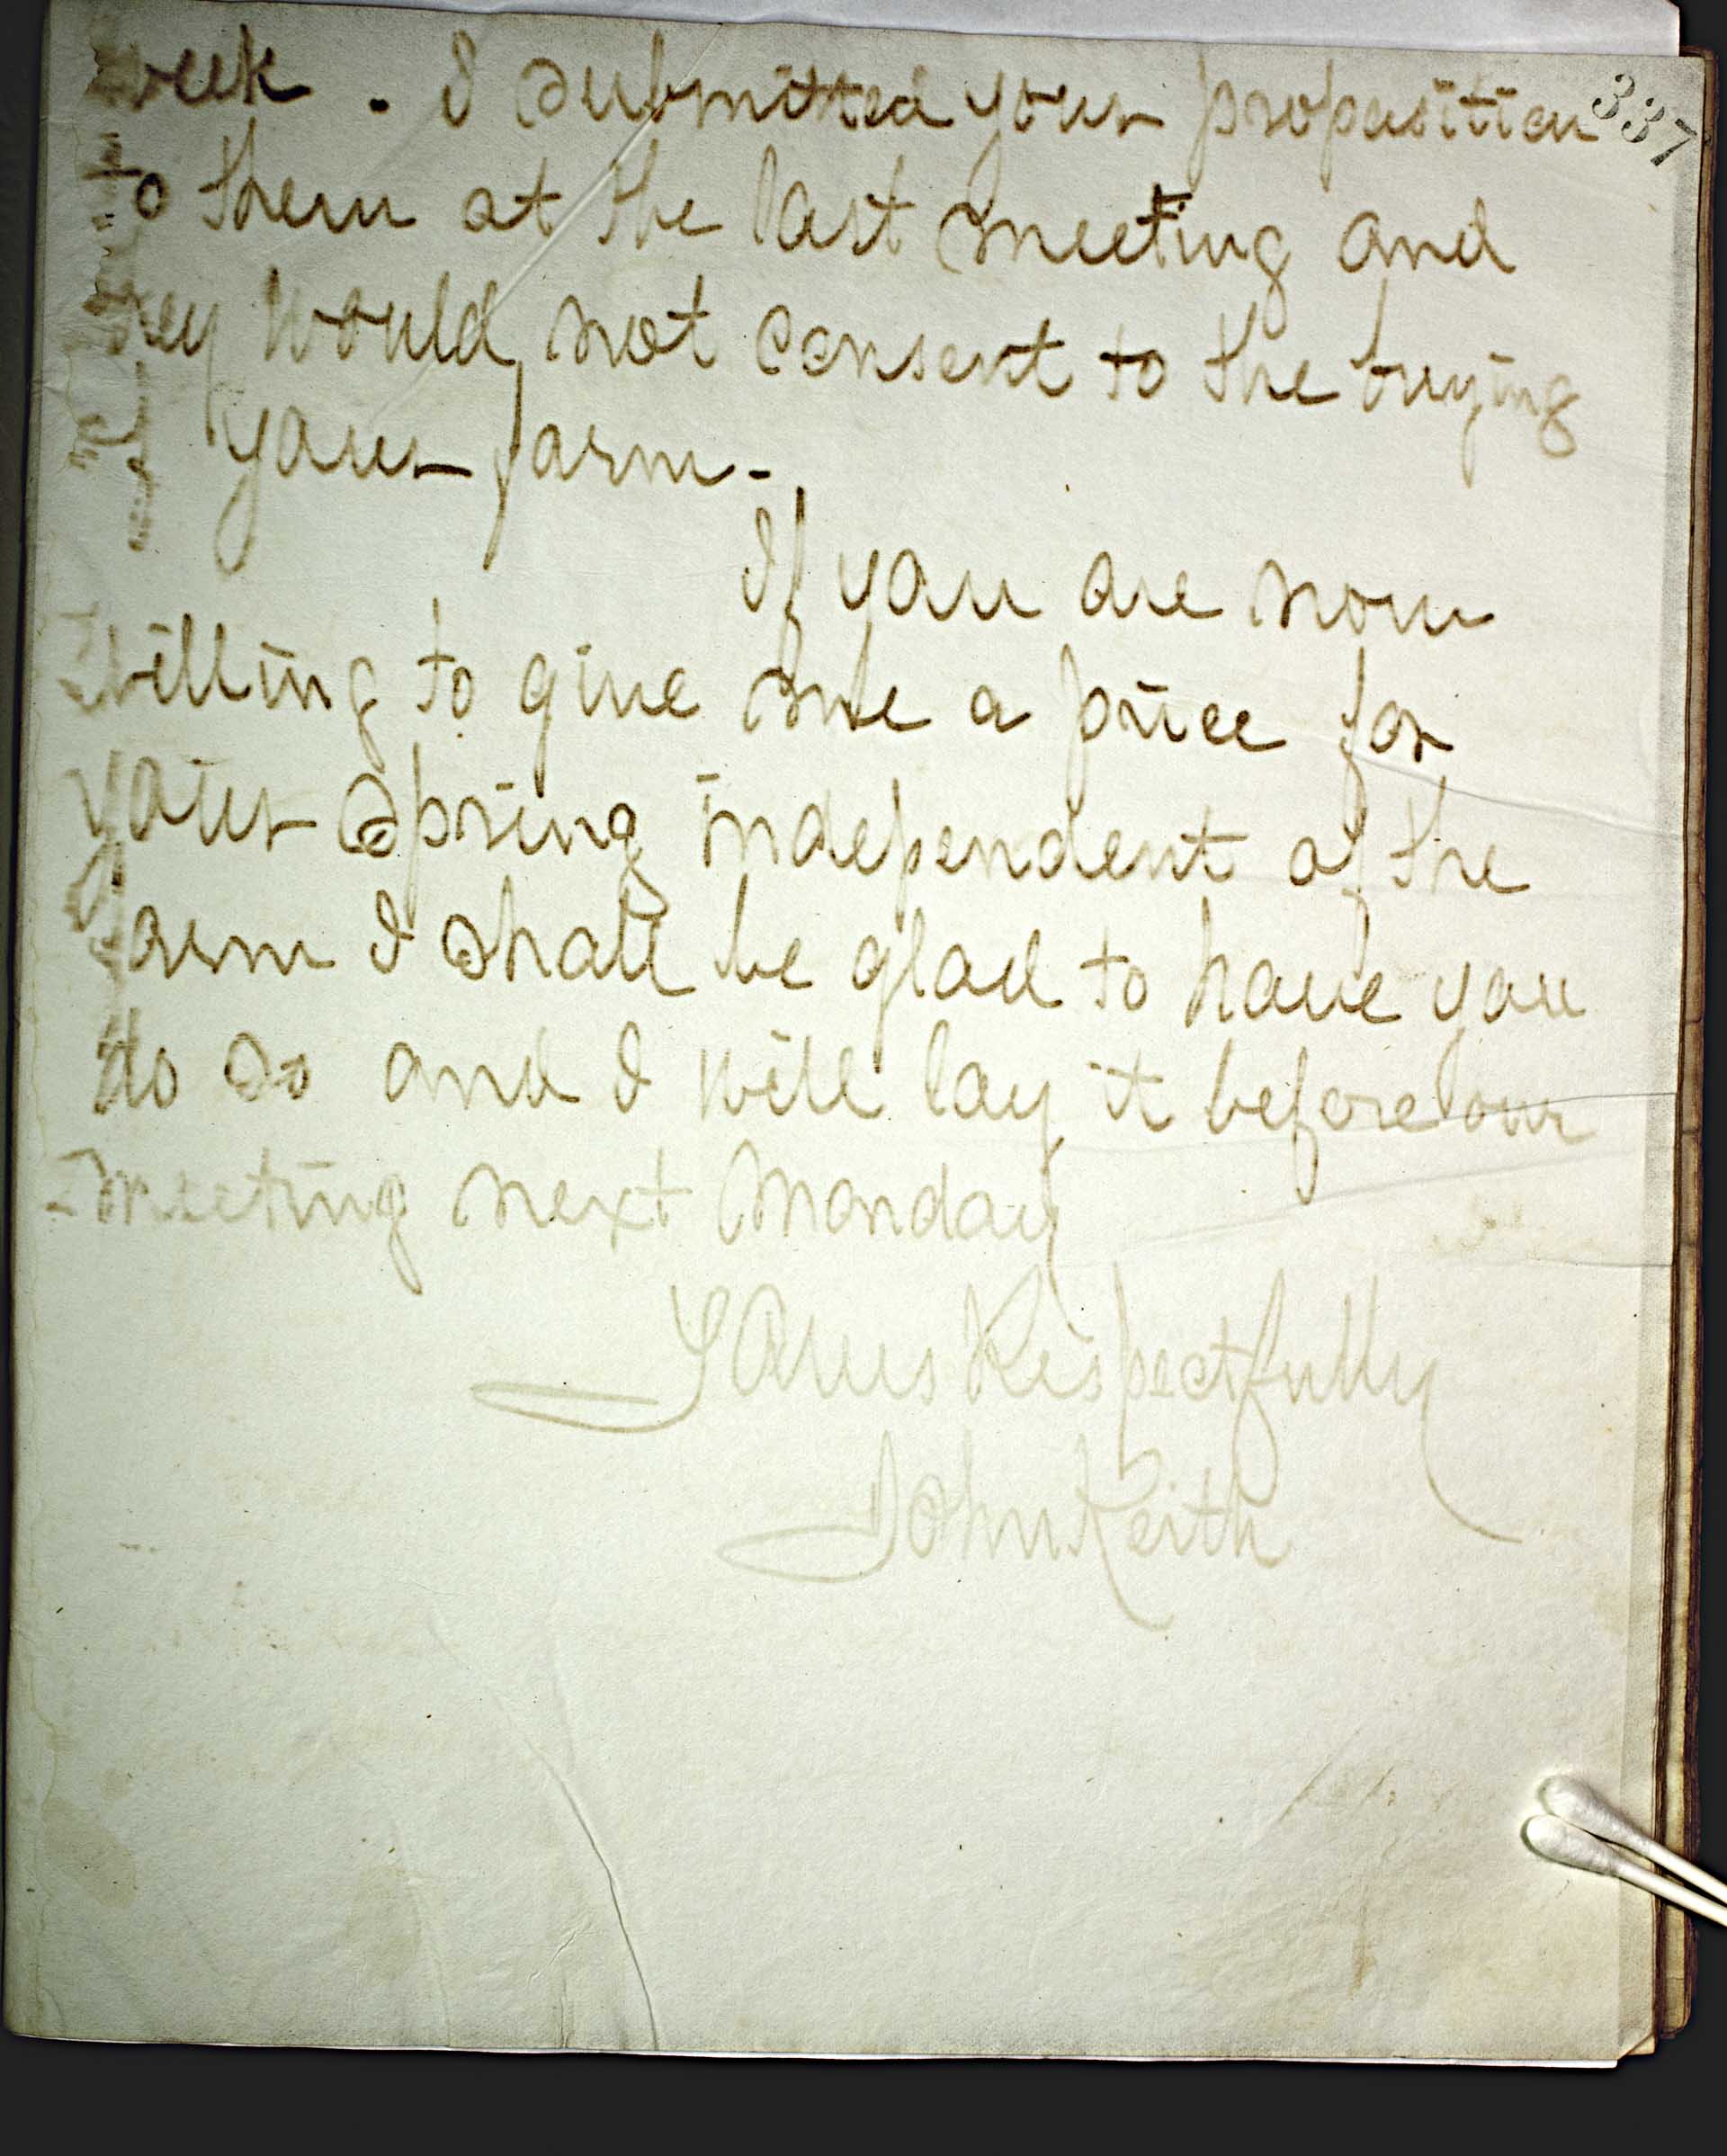 337
week. I submitted your proposition
to them at the last meeting and
they would not consent to the buying
of your farm.
If you are now
willing to give me a price for
your Spring independent of the
farm I shall be glad to have you
do so and I will lay it before our
meeting next Monday
Yours Respectfully
John Keith